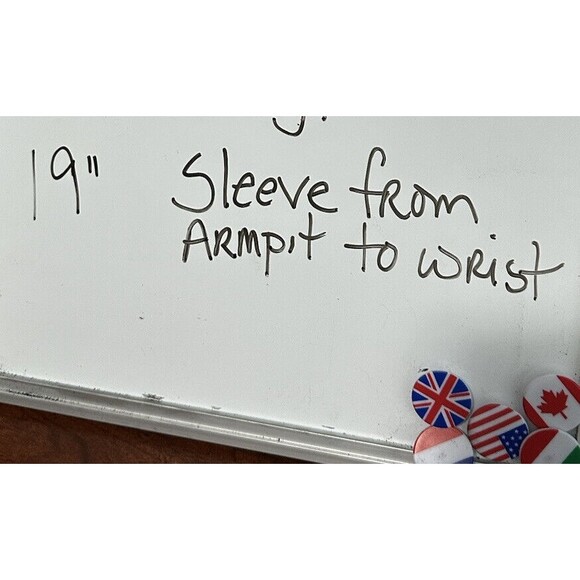 19" Sleeve from
Armpit to wrist